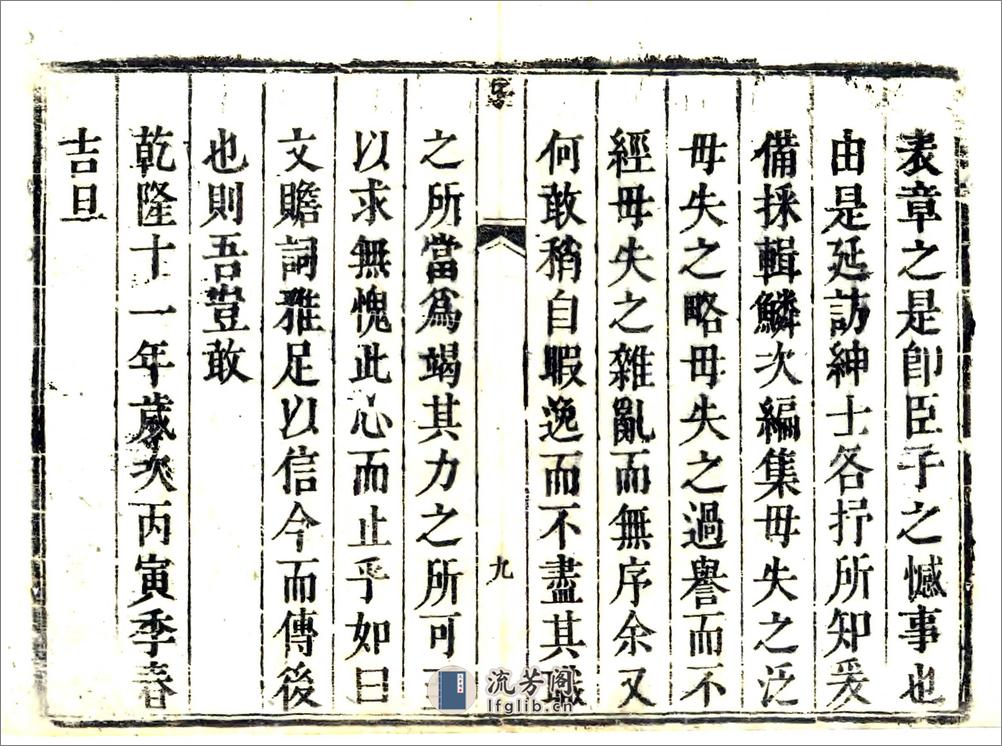 表章之是卽臣子之憾事也
由是延訪紳士各抒所知爰
備採輯鱗次編集毋失之泛
毋失之略毋失之過譽而不
經毋失之雜亂而無序余又
何敢稍自暇逸而不盡其職
九
之所當爲竭其力之所可
以求無愧此心而止乎如曰
文贍詞雅足以信今而傳後
也則吾豈敢
乾隆十一年歲次丙寅季春
吉旦
流芳阁
lfglib.cn